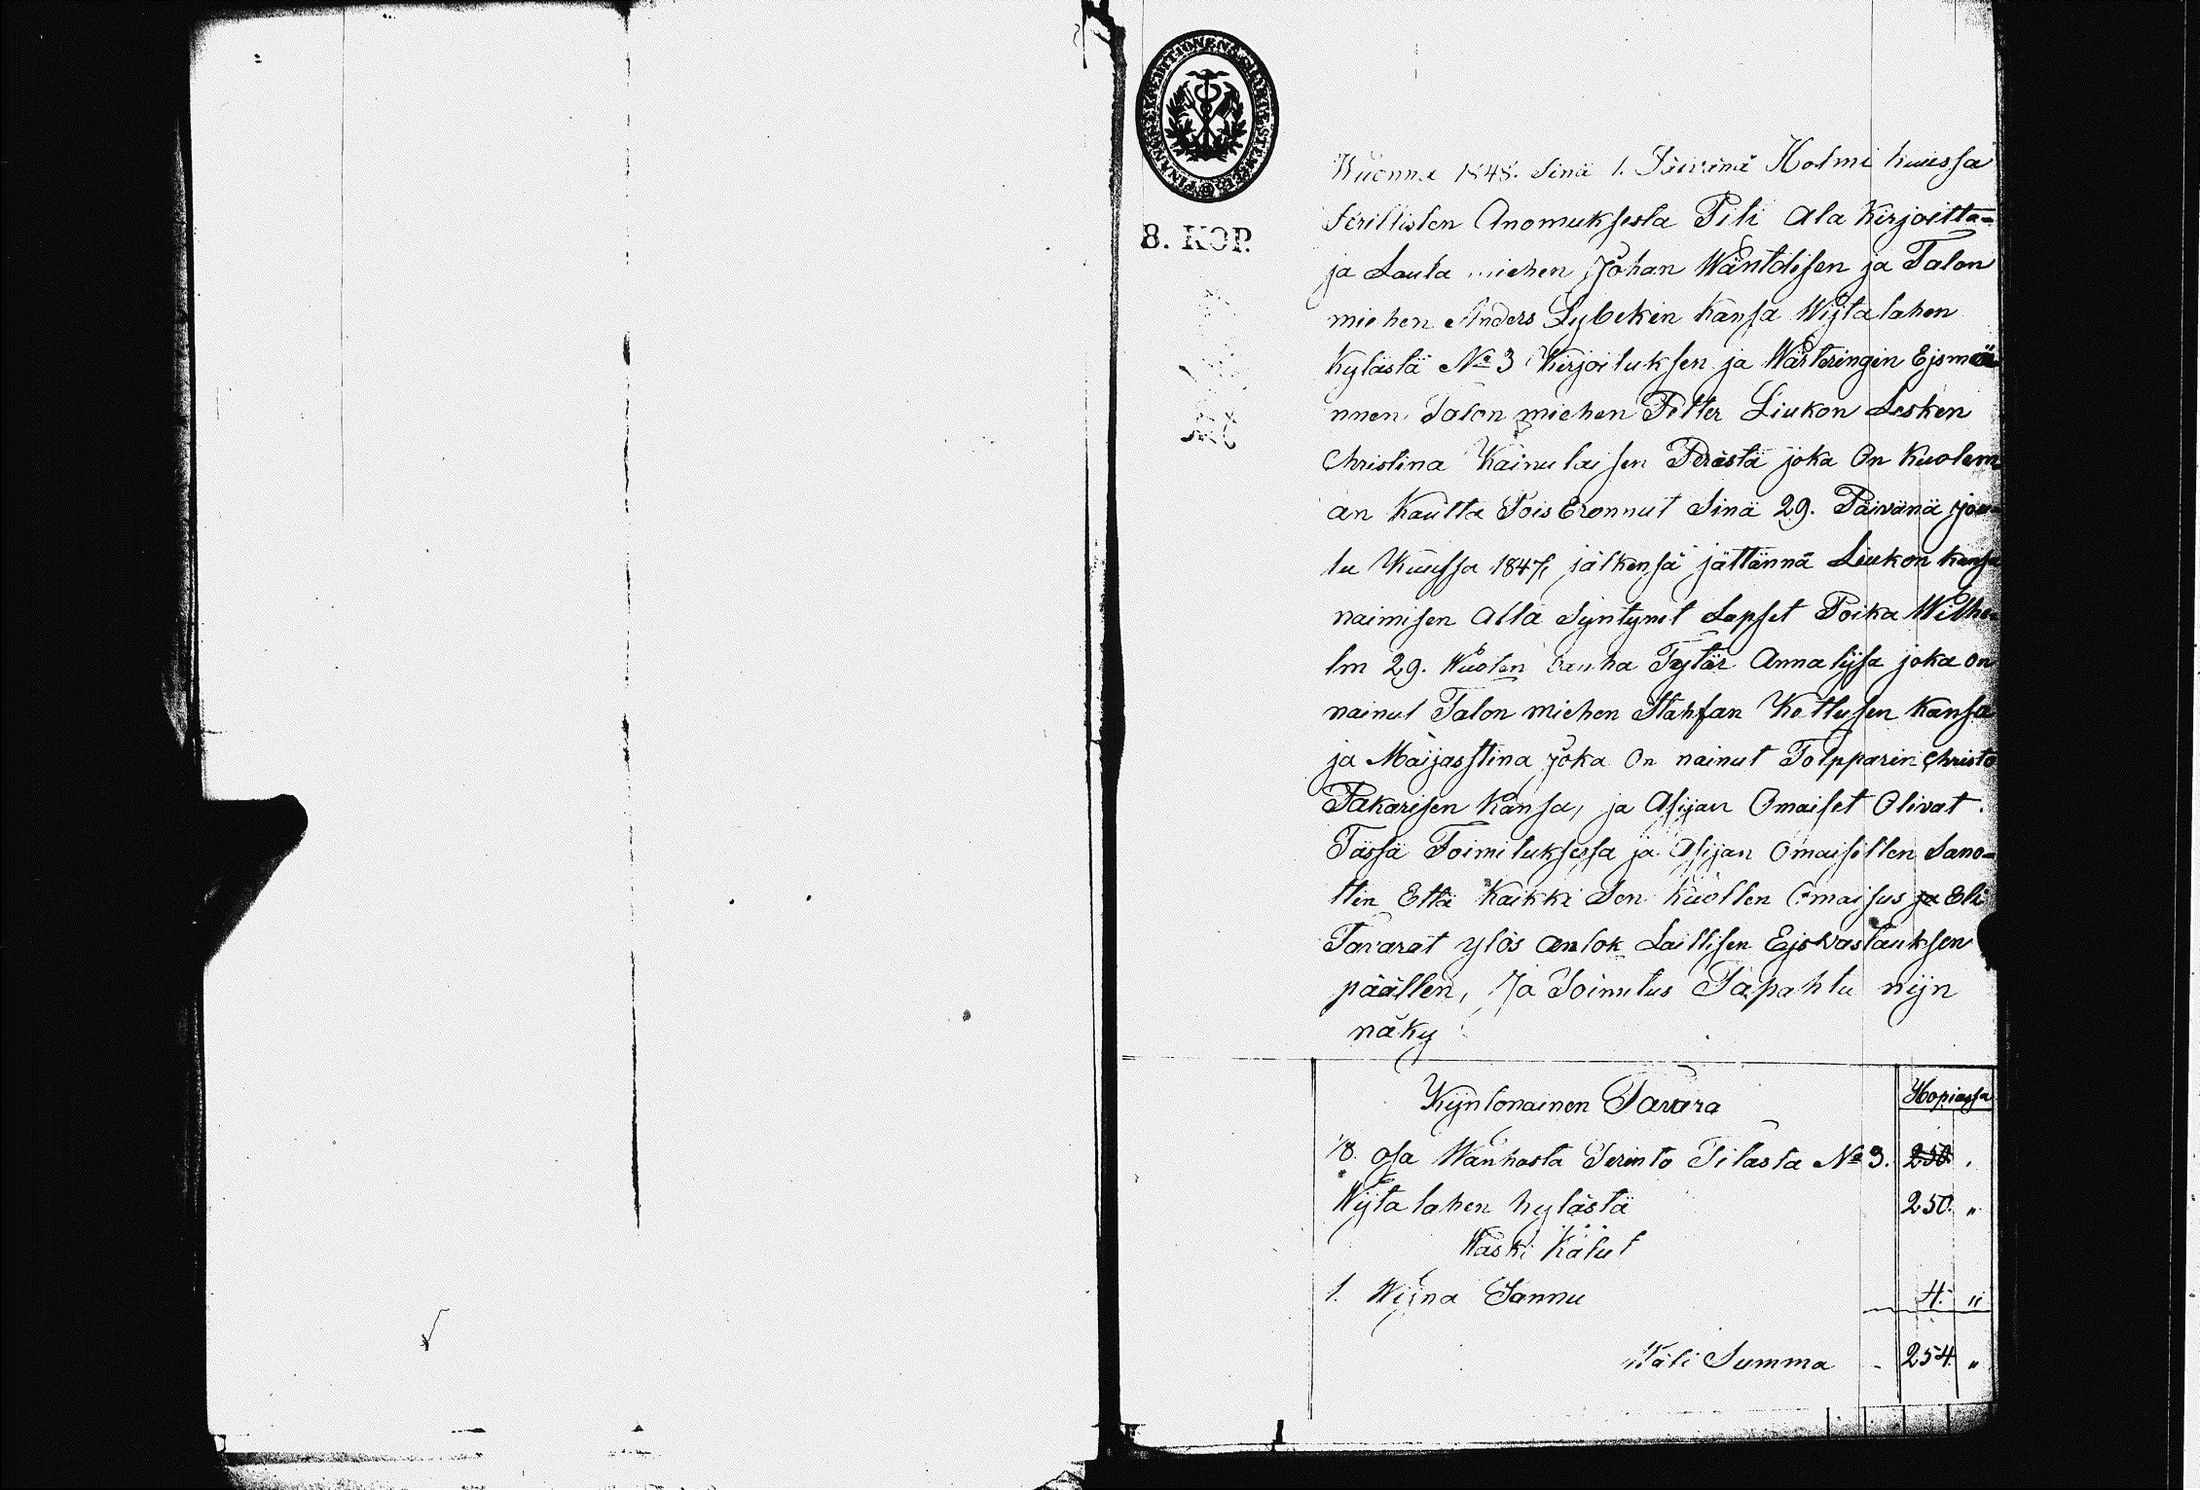 FINANCE EXPEDITIONENS CHARTÆ STEMPEL
8. KOP.
Wuonna 1848. Sinä 1. Päivänä Holmi kuussa
Perillisten Anomuksesta Piti Ala Kirjoitta-
ja Lauta miehen Johan Wäntdisen ja Talon
miehen Anders Lybekin kansa Wijtalahen
Kylästä No 3 Kirjoituksen ja Wärteringin Ejsmää
nnen Talon miehen Petter Liukon Lesken
Christina Kainulaisen Perästä joka On Kuolem
an Kautta Pois Eronnut Sinä 29. Päivänä jou-
lu Kuussa 1847, jälkensä jättännä Liukon kansa
naimisen Alla Syntynet Lapset Poika Wilhe-
lm 29. Wuoten vanha Tytär Annalijsa joka on
nainut Talon miehen Stahfan Kettusen Kansa
ja Maijasstina joka On nainut Tolpparin Christo
Pakarisen Kansa, ja Asijan Omaiset Olivat.
Tässä Toimituksessa ja Asijan Omaisillen Sano-
ttin Että Kaikki Sen Kuollen Omaisus ja Eli
Tavarat ylös Laillisen Ejsvastauksen
päällen, Ja Toimitus Tapahtu nijn
näky
Kijntonainen Tavara Hopiassa
1/8. Osa Wanhasta Perinto Tilasta No 3. 250.
Wijtalahen kylästä 250. "
Waski Kalut
1. Wijna Pannu 4. "
Wäli Summa - 254. "